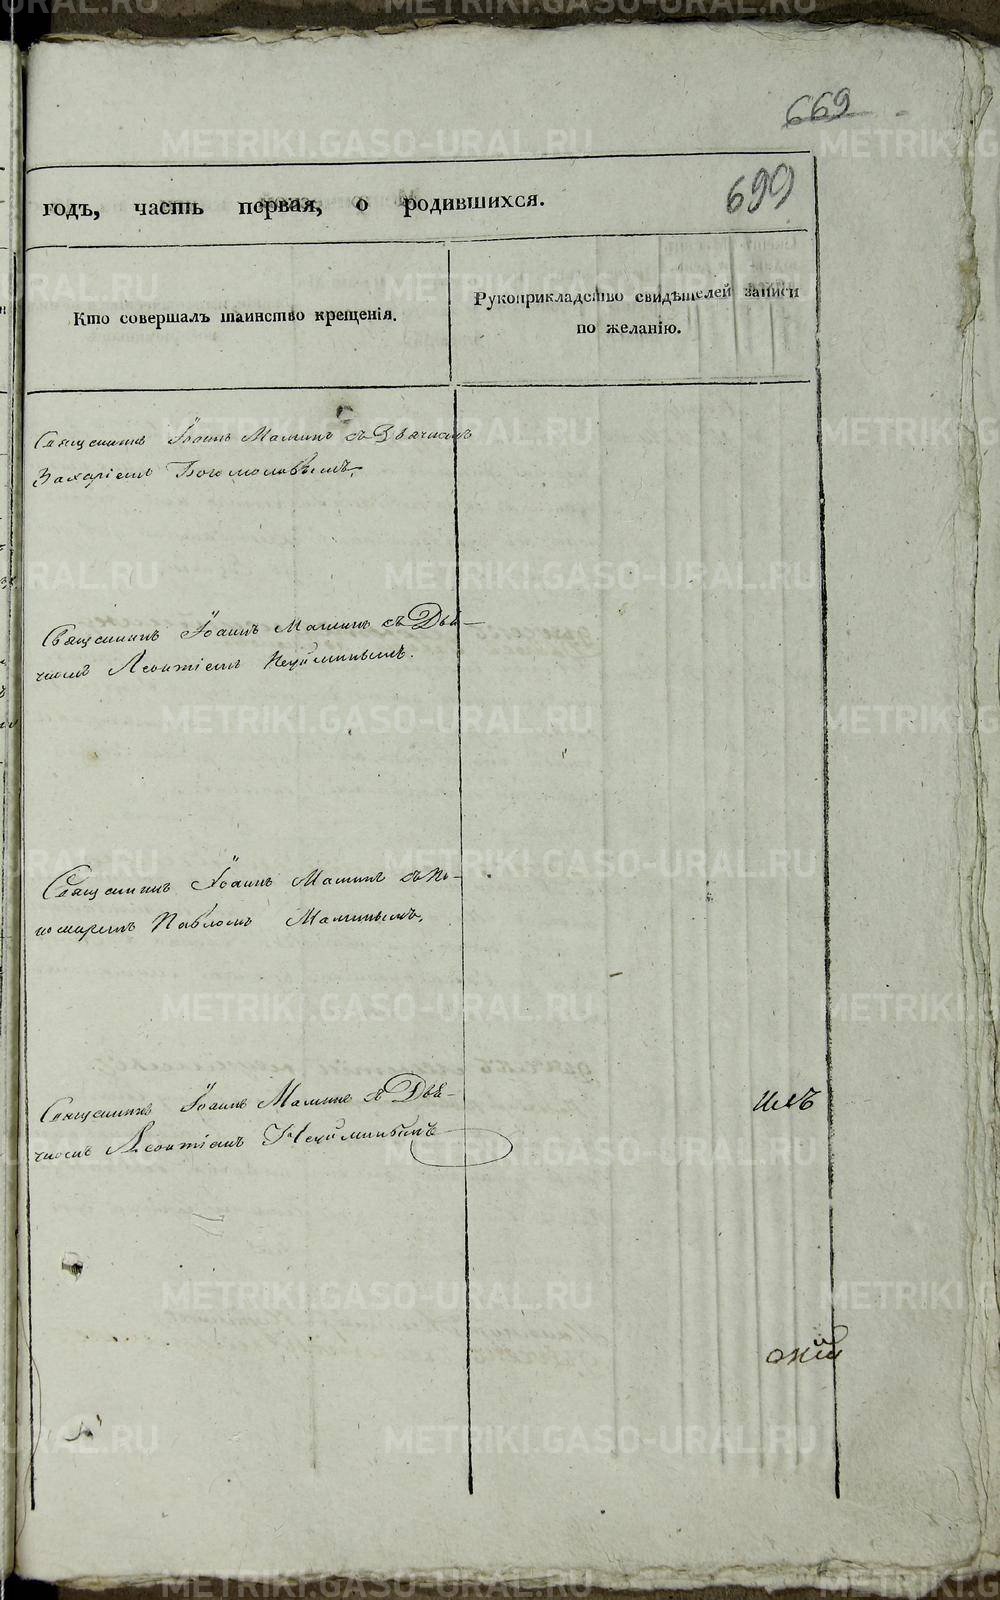 669
699
годъ, часть первая, о родившихся.
Кто совершалъ таинство крещенія.
Рукоприкладство свидѣтелей записи
по желанію.
Священникъ Іоаннъ Маминъ съ Дьячкомъ
Захаріемъ Богомоловымъ.
Священникъ Іоаннъ Маминъ съ Дьяч-
комъ Леонтіемъ
Священникъ Іоаннъ Маминъ съ По-
номаремъ Павломъ Маминымъ.
Священникъ Іоаннъ Маминъ съ Дья-
чкомъ Леонтіемъ
METRIKI.GASO-URAL.RU